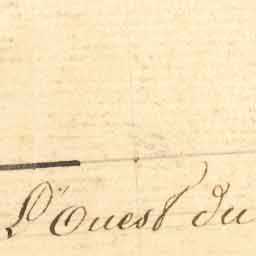 L'Ouest du